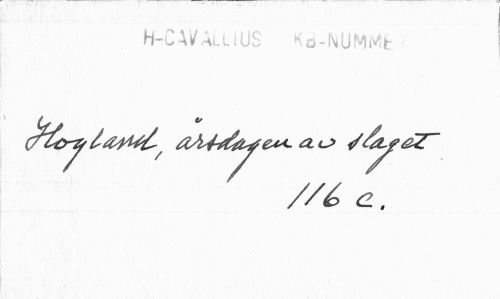 H-CAVALLIUS KB-NUMMER
Hogland, årsdagen av slaget
116 c.